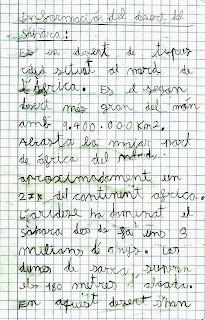 Informació del desert del
Sàhara:
Es un desert de tipus
càlid situat al nord de
l'Àfrica. Es el segon
desert més gran del món
amb 9.400.000 Km2.
Abasta la major part
de Àfrica del nord
aproximadament un
27% del continent africa.
L'aridesa ha dominat el
sàhara des de fa uns 3
milians d'anys. Les
dunes de sorra, superen
els 180 metres d'alçada.
En aquest desert s'han